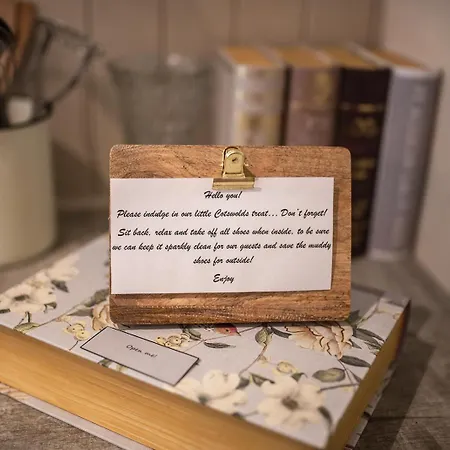 Hello you!
Please indulge in our little Cotswolds treat... Don't forget!
Sit back, relax and take off all shoes when inside, to be sure
we can keep it sparkly clean for our guests and save the muddy
shoes for outside!
Enjoy
Open me!